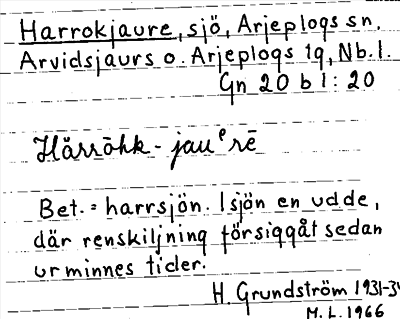 Harrokjaure, sjö, Arjeplogs sn.
Arvidsjaurs o. Arjeplogs tg, Nb. l.
Gn 20 b 1:20
Hårrōhk-jauᵉrē
Bet. = harrsjön. I sjön en udde,
där renskiljning försiggåt sedan
urminnes tider.
H. Grundström 1931-34
M. L. 1966